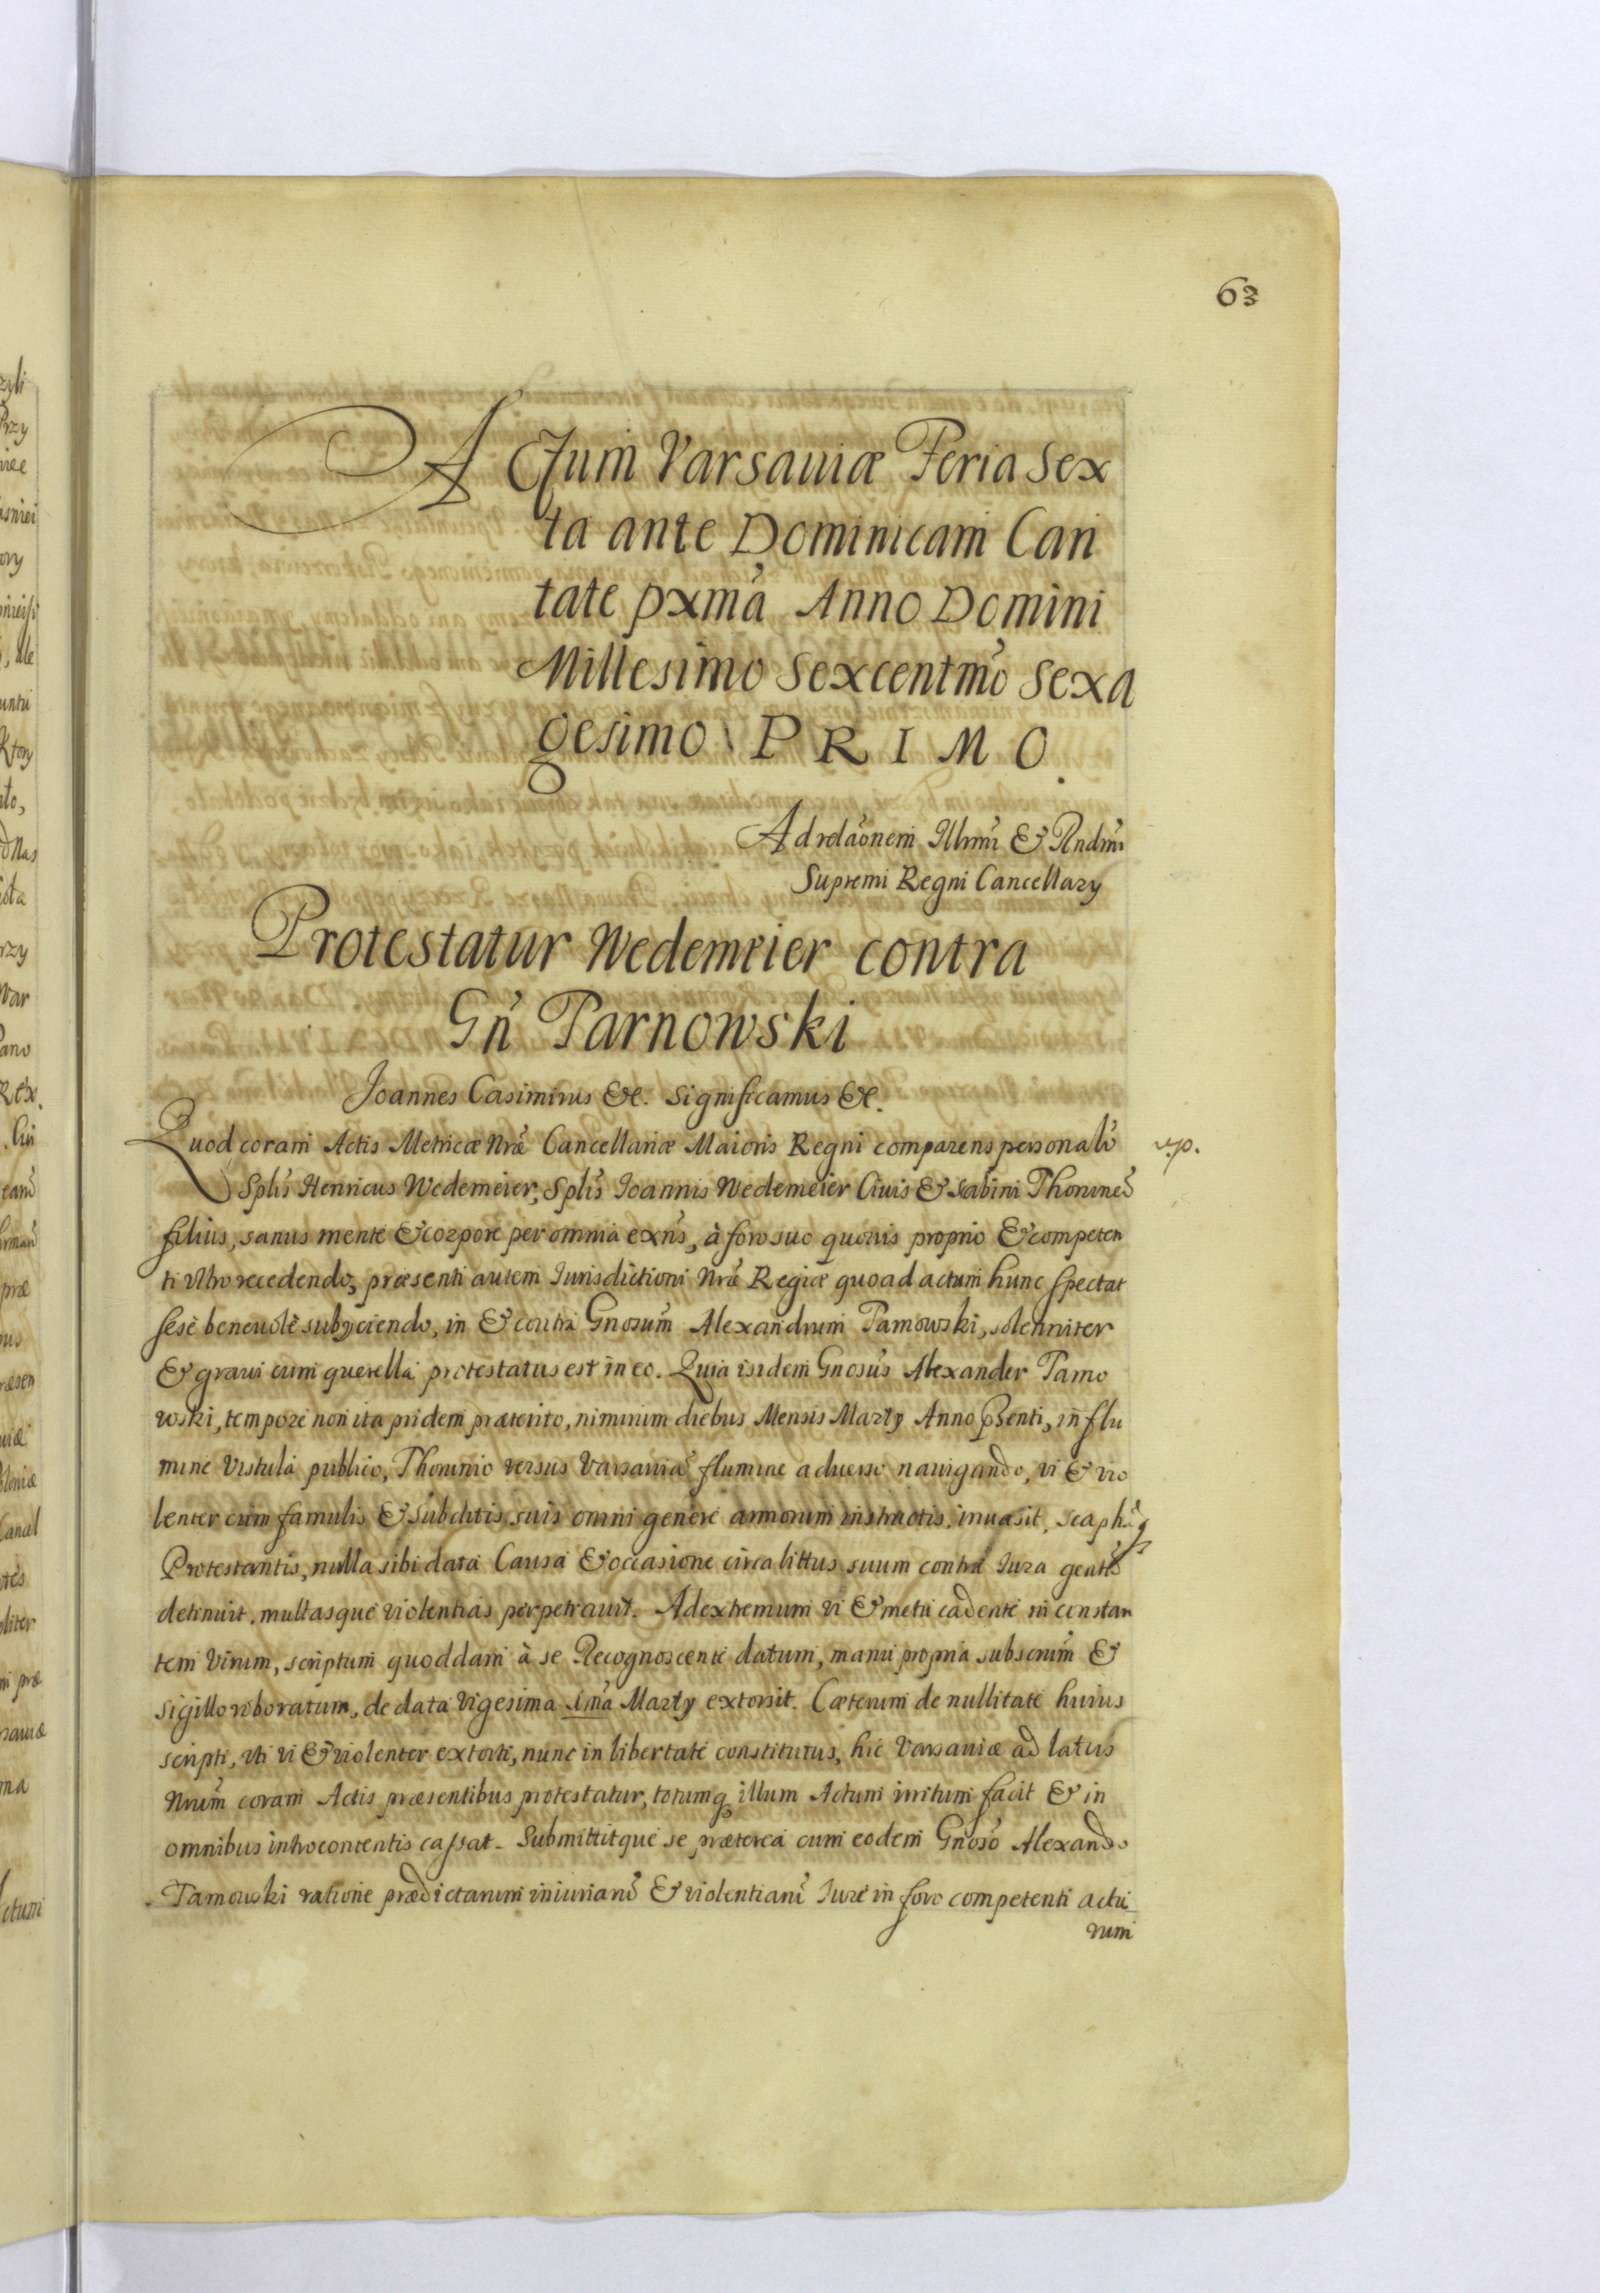 63
ACtum Varsauiæ Feria Sex
ta ante Dominicam Can
tate pxmã Anno Domini
Millesimo Sexcentmõ Sexa
gesimo PRIMO.
Ad relãonem Illrmi & Rndmi
Supremi Regni Cancellary
Protestatur Wedemeier contra
Gñ Tarnowski
Joannes Casimirus &c. Significamus &c.
Quod coram Actis Metricæ Nræ Cancellariæ Maioris Regni comparens personalr
Splis Henricus Wedemeier, Splis Joannis Wedemeier Ciuis & Scabini Thorunes
filius, sanus mente & corpore per omnia exñs, à foro suo quouis proprio & competen
ti vltro recedendo, præsenti autem Iurisdictioni Nræ Regiæ quoad actum hunc spectat
sese beneuolè subyciendo, in & contra Gnosum Alexandrum Tarnowski, solenniter
& graui cum querella protestatus est in eo. Quia isidem Gnosus Alexander Tarno
wski, tempore non ita pridem præterito, nimirum diebus Mensis Marty Anno pñsenti, in flu
mine Vistula publico, Thorunio versus Varsauiã flumine aduerso nauigando, vi & vio
lenter cum famulis & subditis suis omni genere armorum instructis, inuasit, scaphãq
Protestantis, nulla sibi data Causa & occasione circa littus suum contra Iura gentiũ
detinuit, multasque violentias perpetrauit. Ad extremum vi & metu cadente in constan
tem virum, scriptum quoddam à se Recognoscente datum, manu propria subscrim &
sigillo roboratum, de data vigesima imã Marty extorsit. Cæterum de nullitate huius
scripti, vti vi & violenter extorti, nunc in libertate constitutus, hic Varsauiæ ad latus
Nrum coram Actis præsentibus protestatur, totumq illum Actum irritum facit & in
omnibus introcontentis cassat. Submittitque se præterea cum eodem Gnoso Alexandro
Tarnowski ratione prædictarum iniuriarũ & violentiarũ Iure in foro competenti actu
rum